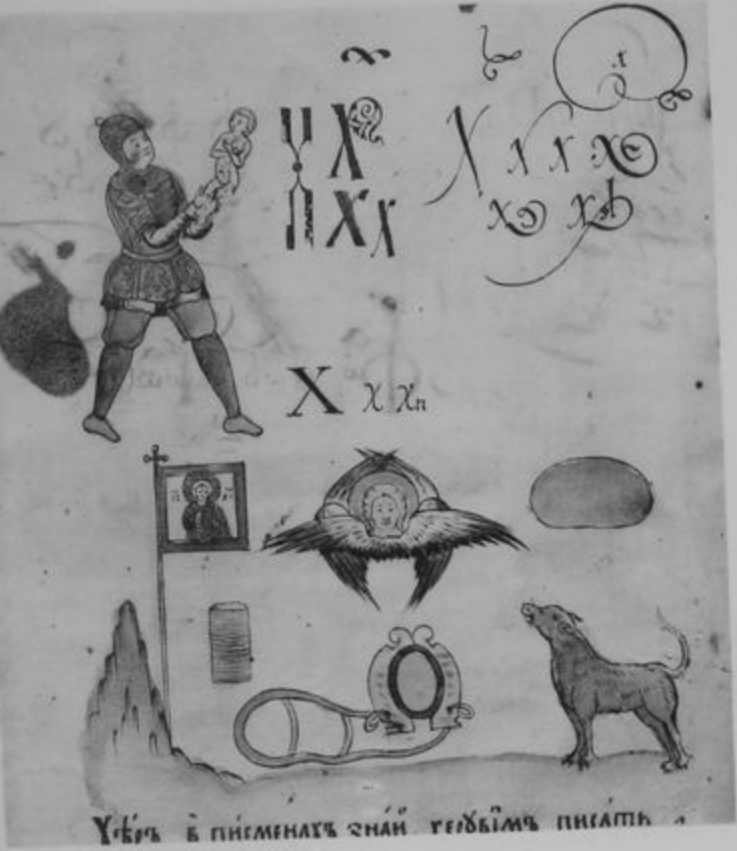 х
Х Х Х х х х
Х Х х х х
X χ х
Хѣръ в писменахъ знай херувимъ писать